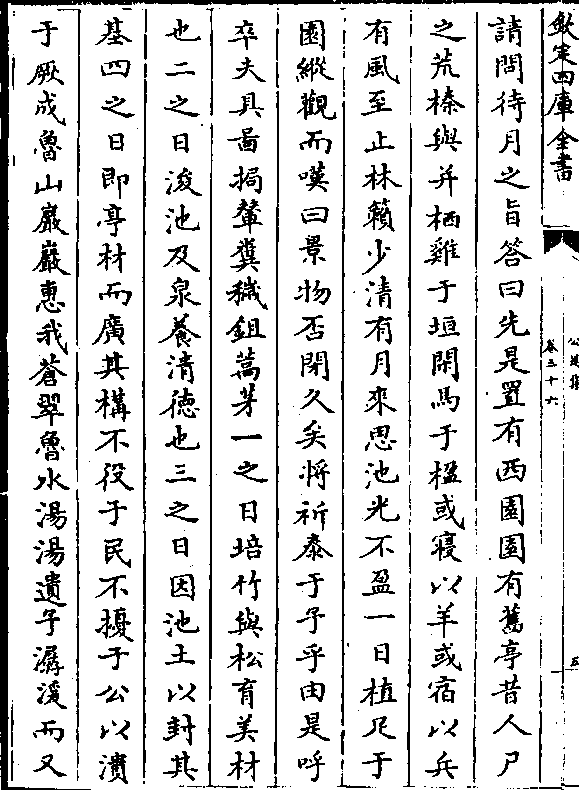 欽定四庫全書
公是集
卷三十六
請問待月之旨答曰先是置有西園園有舊亭昔人尸
之荒榛與并栖雞于垣閑馬于楹或寢以羊或宿以兵
有風至止林籟少清有月來思池光不盈一日植尼于
園縱觀而嘆曰景物否閉久矣将祈泰于予乎由是呼
卒夫具畚挶輂糞穢鉏蒿芽一之日培竹與松育美材
也二之日浚池及泉養清德也三之日因池土以封其
基四之日即亭材而廣其構不役于民不擾于公以潰
于厥成魯山巖巖惠我蒼翠魯水湯湯遺予潺湲而又